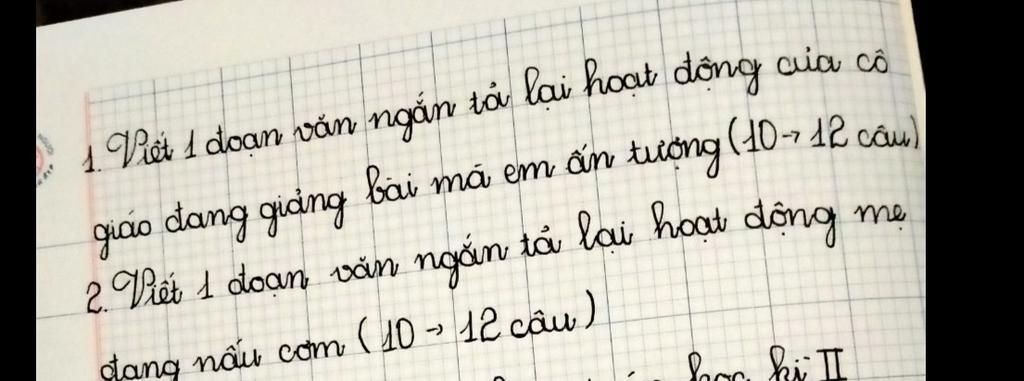 1. Viết 1 đoạn văn ngắn tả lại hoạt động của cô
giáo đang giảng bài mà em ấn tượng (10 → 12 câu)
2. Viết 1 đoạn văn ngắn tả lại hoạt động mẹ
đang nấu cơm (10 → 12 câu)
học kì II